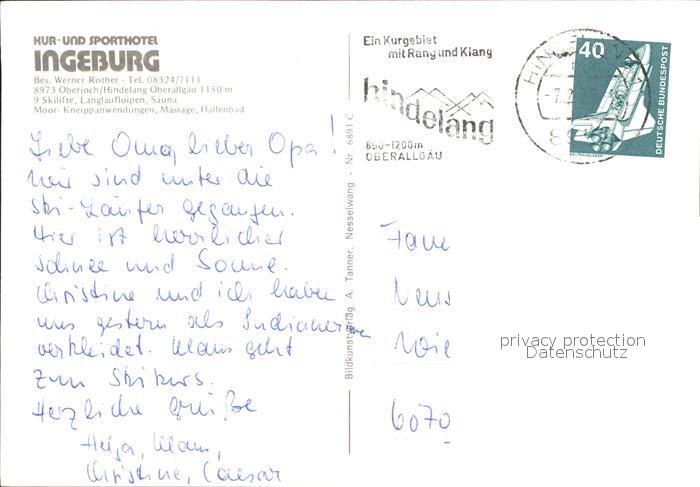 KUR-UND SPORTHOTEL
INGEBURG
Bes. Werner Rother - Tel. 08324/7111
8973 Oberjoch/Hindelang Oberallgäu 1150 m
9 Skilifte, Langlaufloipen, Sauna
Moor- Kneippanwendungen, Massage, Hallenbad
Liebe Oma, lieber Opa!
wir sind unter die
Ski-Läufer gegangen.
Hier ist herrlicher
Schnee und Sonne.
Christine und ich haben
uns gestern als Indianerinnen
verkleidet. Klaus geht
zum Skikurs.
Herzliche Grüße
Helga, Klaus,
Christine, Caesar
Bildkunstverlag A. Tanner, Nesselwang - Nr. 6891 C
Ein Kurgebiet
mit Rang und Klang
hindelang
850-1200m
OBERALLGÄU
40
DEUTSCHE BUNDESPOST
Fam
Neus
Wie
6070
privacy protection
Datenschutz